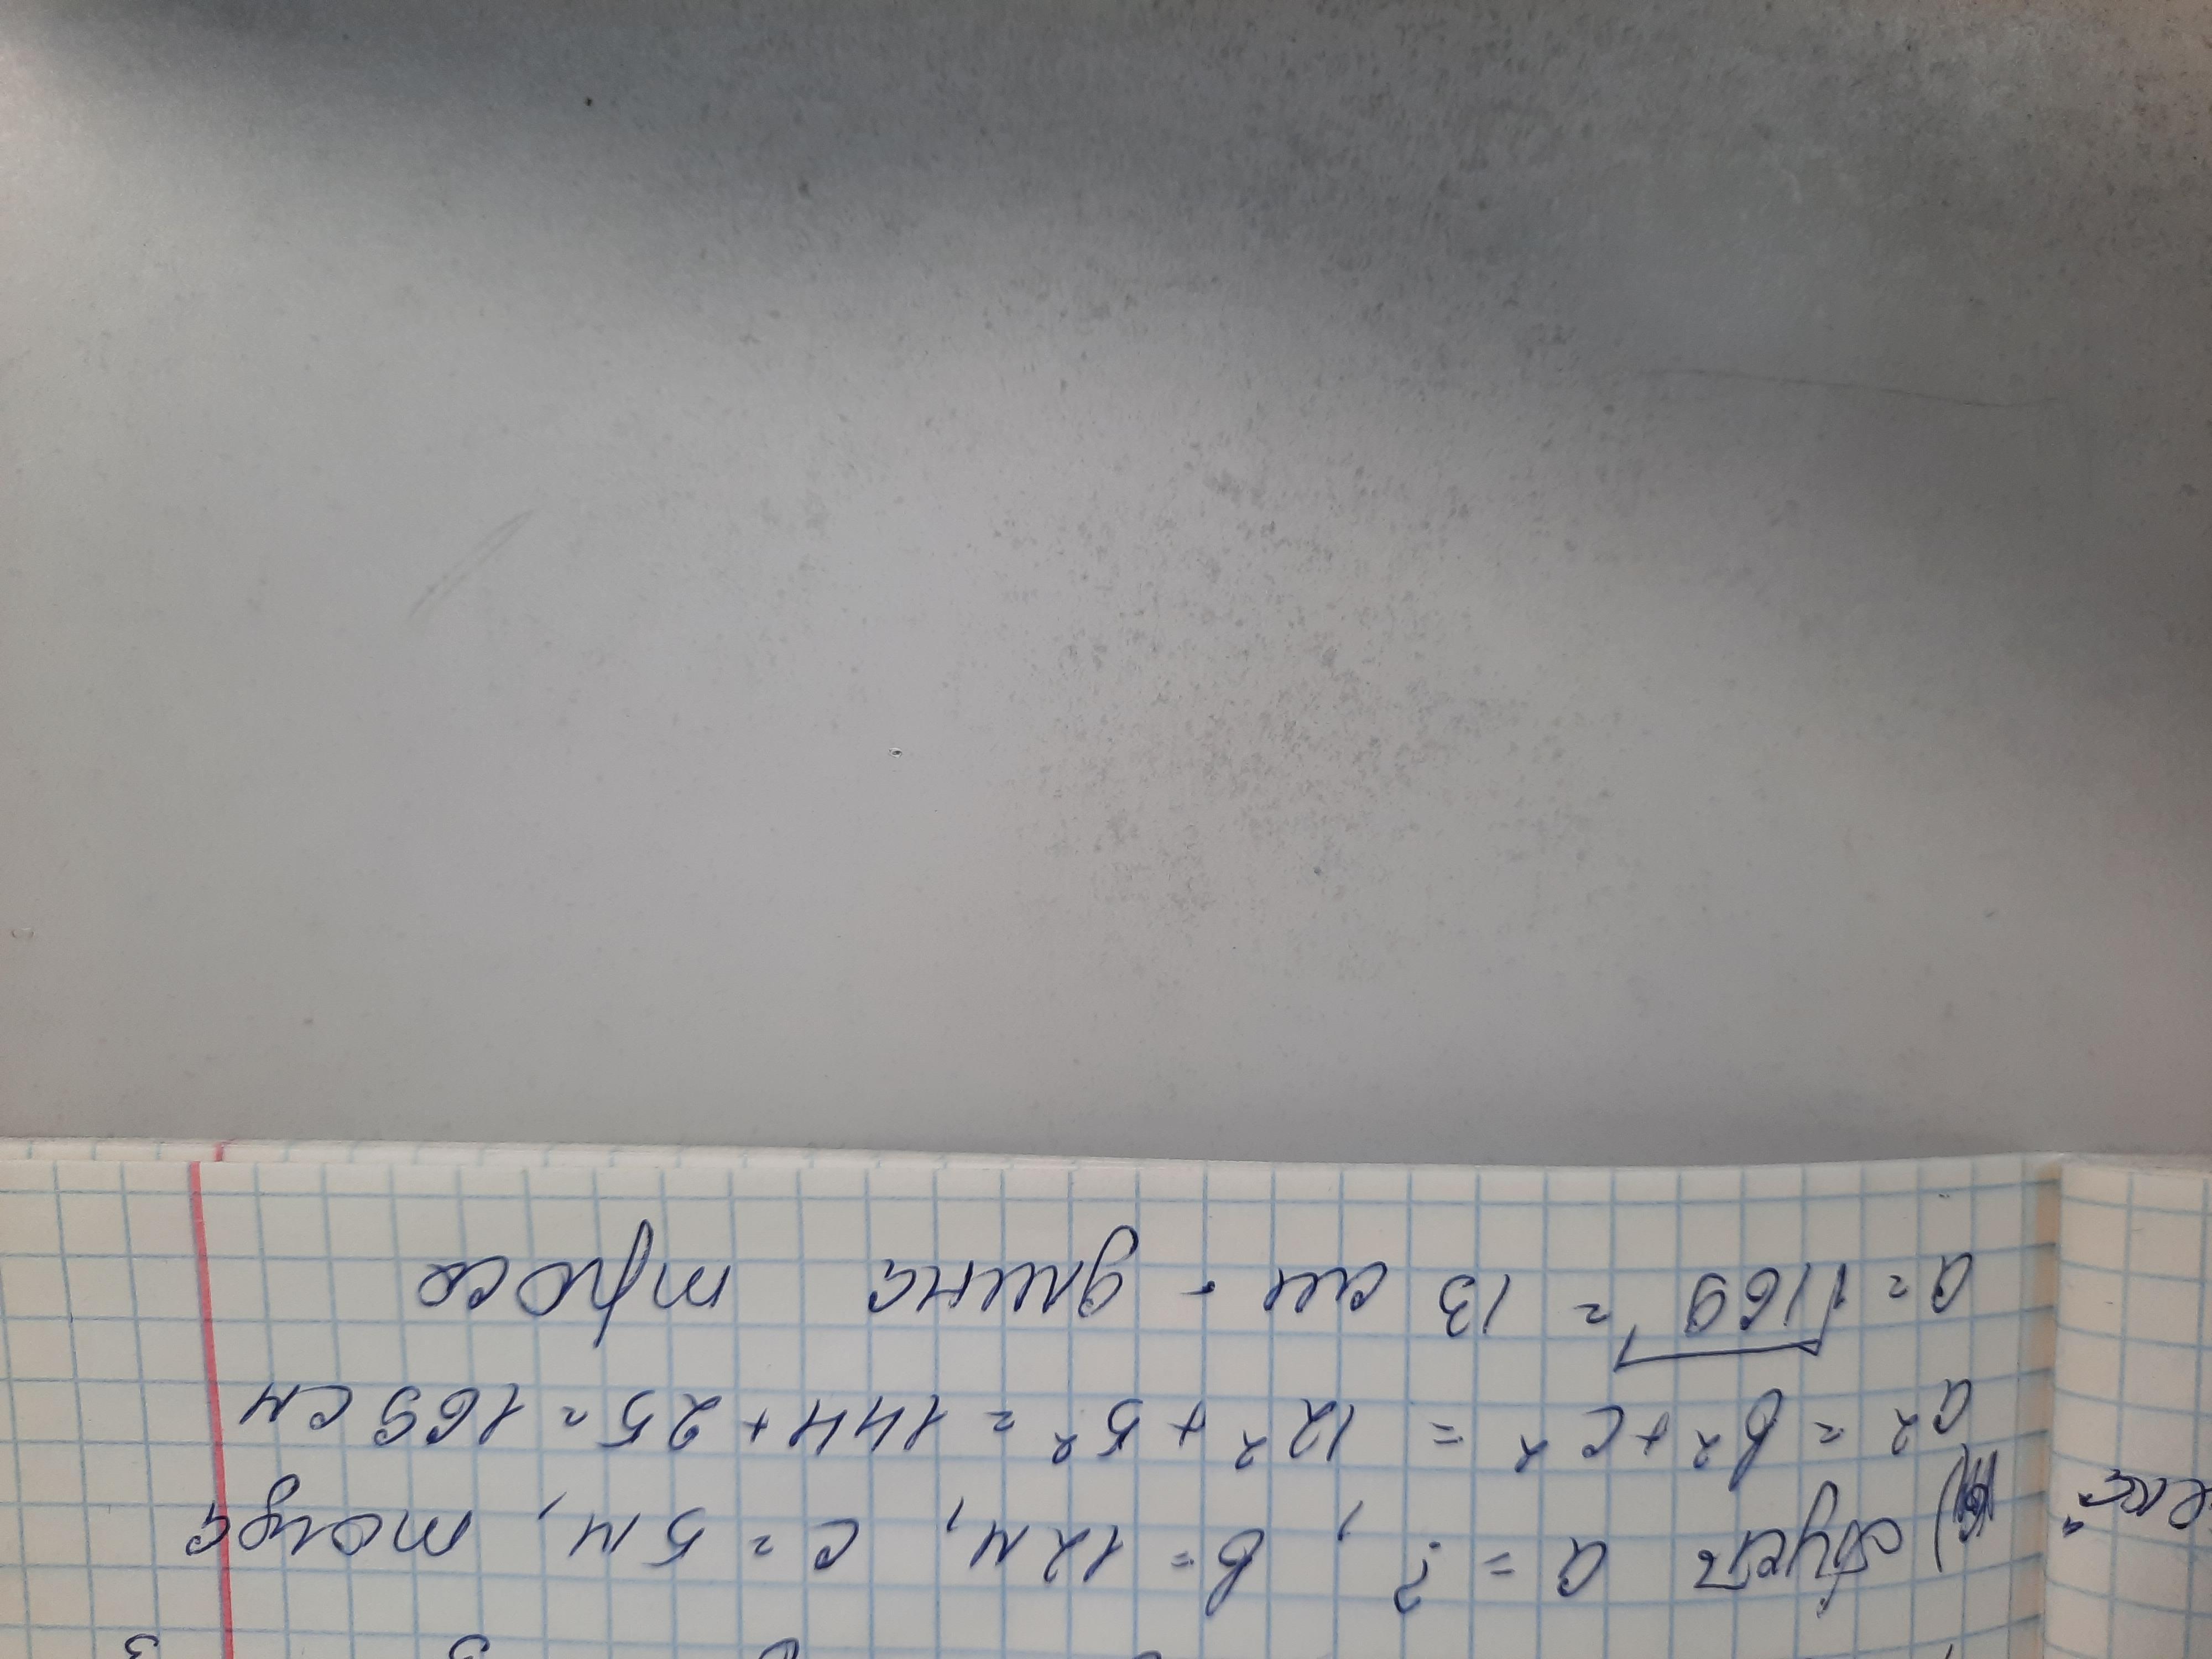 16) Пусть a = ?, b = 12м, c = 5м, тогда
a² = b² + c² = 12² + 5² = 144 + 25 = 169 см
a = √169 = 13 см - длина троса